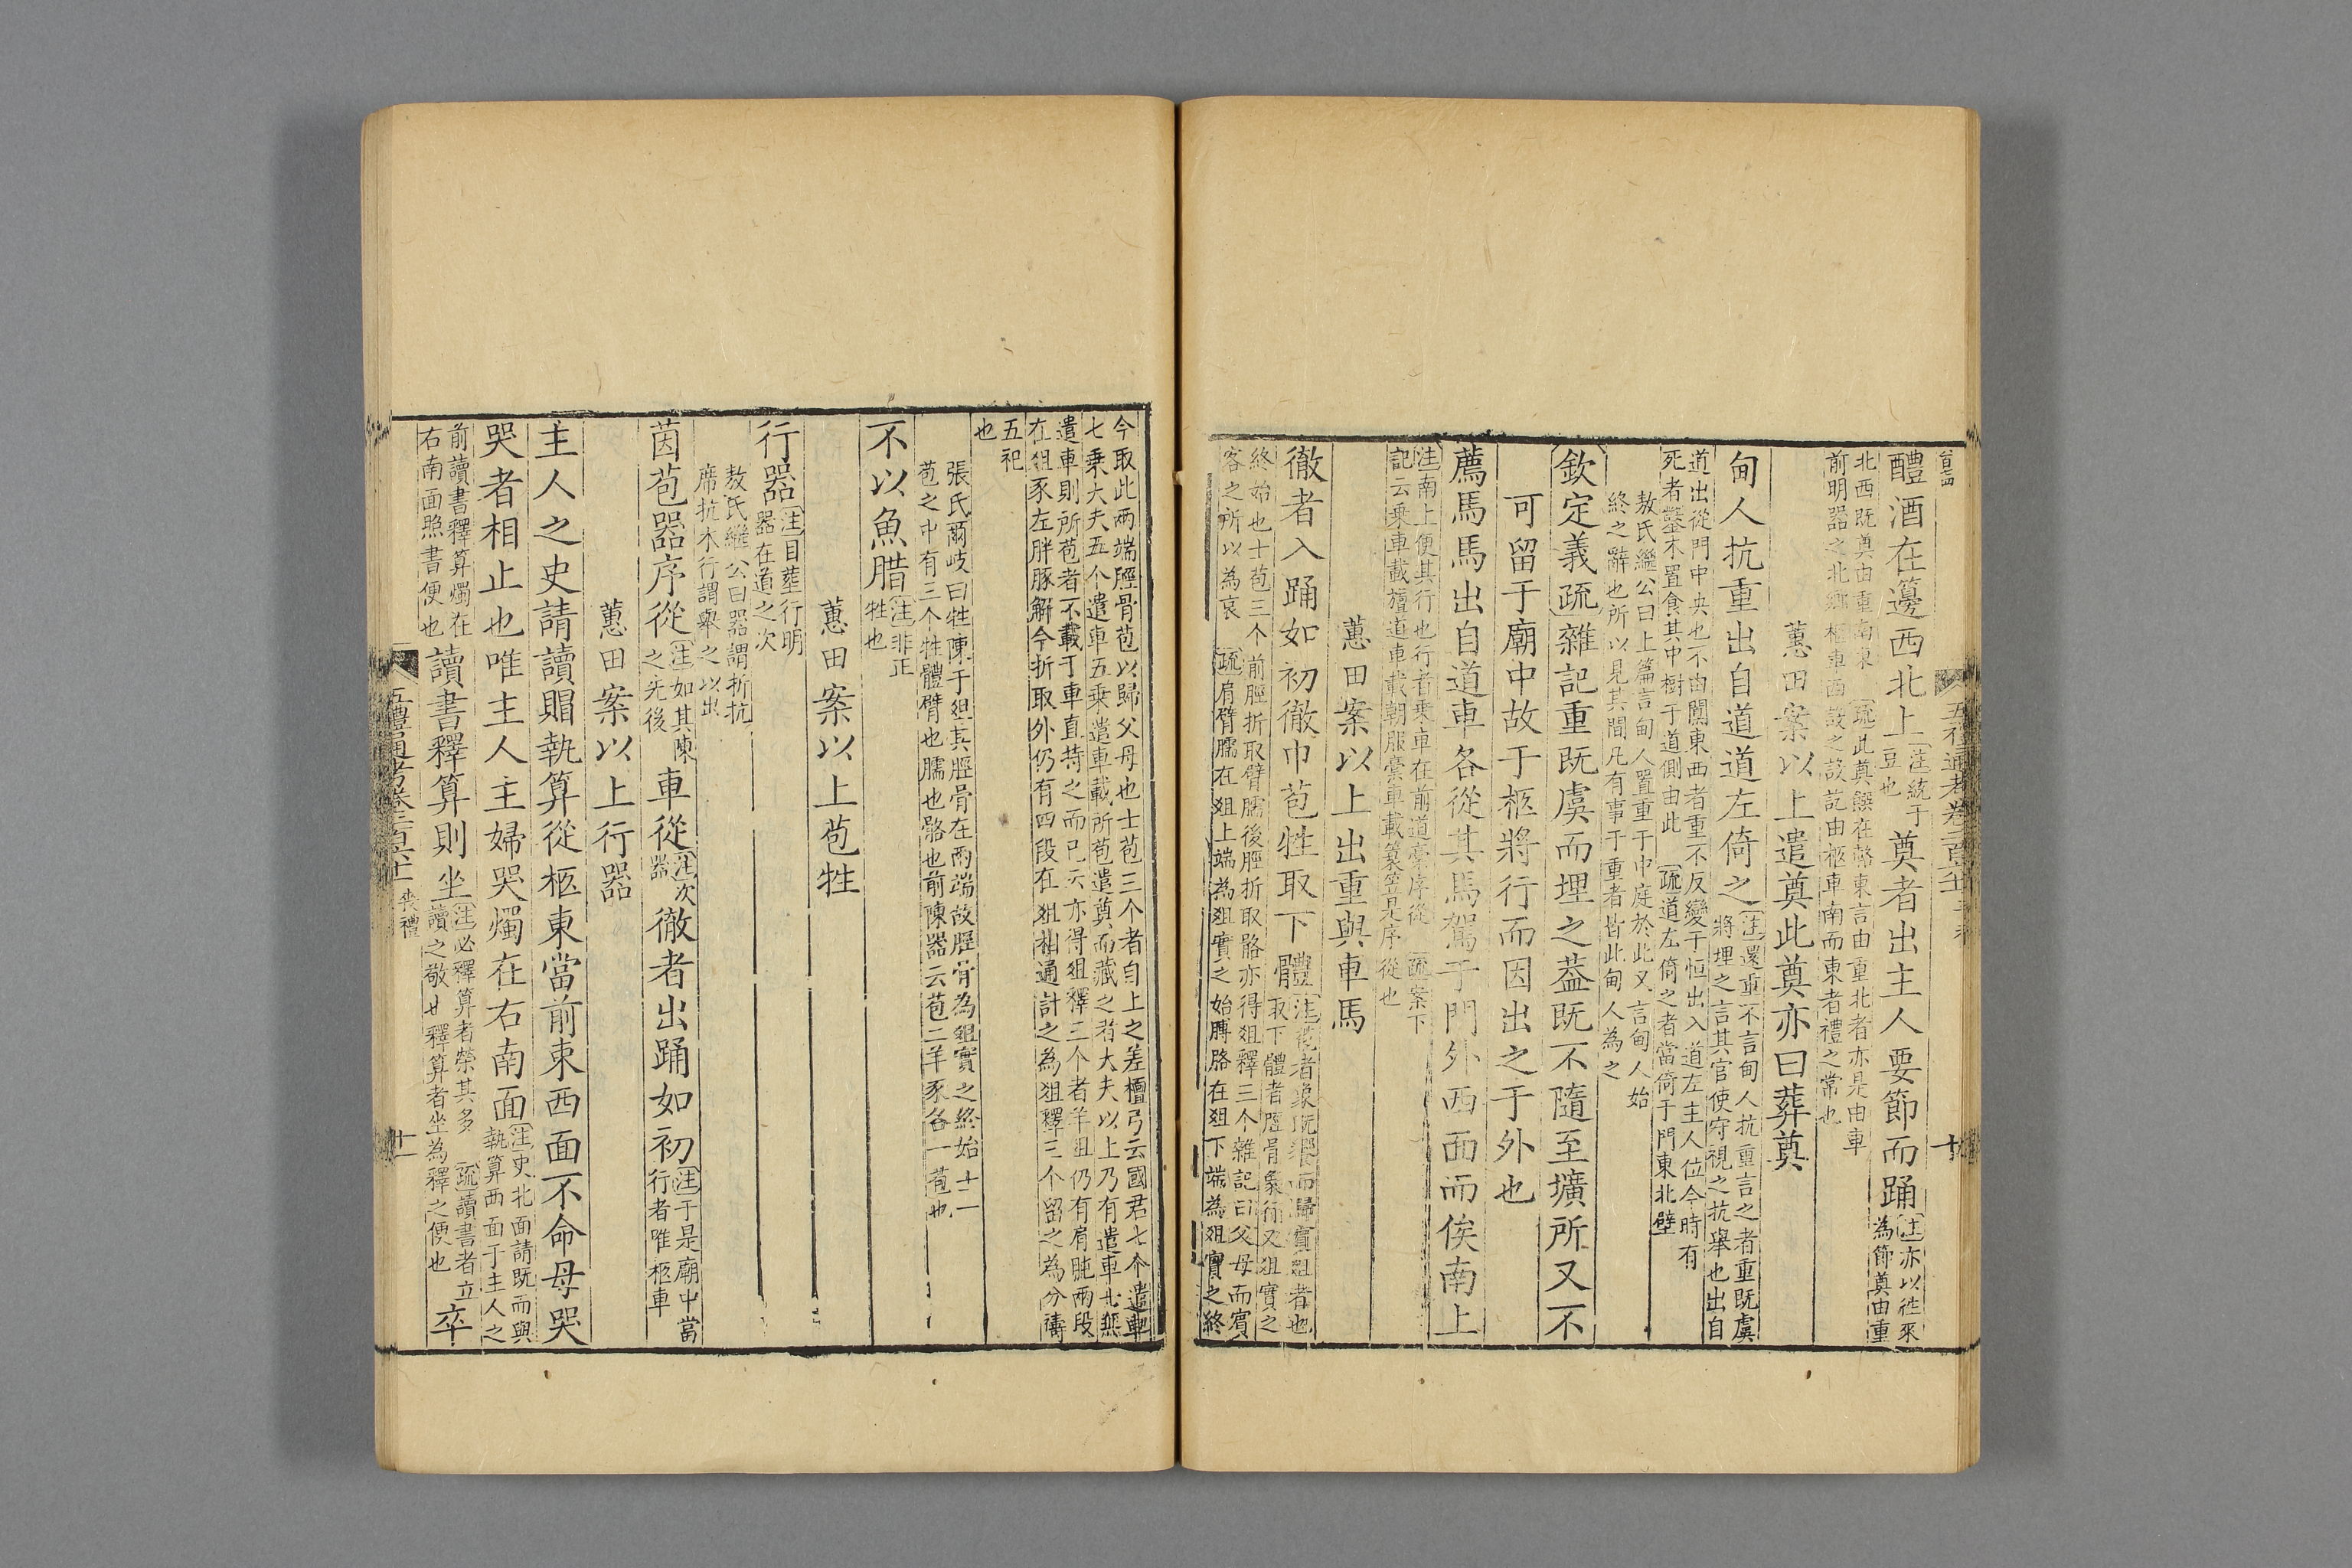 醴酒在籩西北上注統于豆也奠者出主人要節而踊注亦以往來為節奠由重
北西既奠由重南東疏此奠饌在輅東言由重北者亦是由車前明器之北鄉柩車西設之設訖由柩車南而東者禮之常也
蕙田案以上遣奠此奠亦曰葬奠
甸人抗重出自道道左倚之注還重不言甸人抗重言之者重既虞將埋之言其官使守視之抗舉也出自
道出從門中央也不由闑東西者重不反變于恒出入道左主人位今時有死者鑿木置食其中樹于道側由此疏道左倚之者當倚于門東北壁
敖氏繼公曰上篇言甸人置重于中庭於此又言甸人始終之辭也所以見其間凡有事于重者皆此甸人為之
欽定義疏雜記重既虞而埋之葢既不隨至壙所又不
可留于廟中故于柩將行而因出之于外也
薦馬馬出自道車各從其馬駕于門外西面而俟南上
注南上便其行也行者乘車在前道槀序從疏案下記云乘車載旜道車載朝服槀車載蓑笠是序從也
蕙田案以上出重與車馬
徹者入踊如初徹巾苞牲取下體注苞者象既饗而歸賓俎者也取下體者脛骨象行又俎實之
終始也士苞三个前脛折取臂臑後脛折取骼亦得俎釋三个雜記曰父母而賓客之所以為哀疏肩臂臑在俎上端為俎實之始膊胳在俎下端為俎實之終
今取此兩端脛骨苞以歸父母也士苞三个者自上之差檀弓云國君七个遣車七乘大夫五个遣車五乘遣車載所苞遣奠而藏之者大夫以上乃有遣車士無
遣車則所苞者不載于車直持之而已云亦得俎釋三个者羊俎仍有肩肫兩段在俎豕左胖豚解今折取外仍有四段在俎相通計之為俎釋三个留之為分禱
五祀也
張氏爾岐曰牲陳于俎其脛骨在兩端故脛骨為俎實之終始士一苞之中有三个牲體臂也臑也骼也前陳器云苞二羊豕各一苞也
不以魚腊注非正牲也
蕙田案以上苞牲
行器注目葬行明器在道之次
敖氏繼公曰器謂折抗席抗木行謂舉之以出
茵苞器序從注如其陳之先後車從注次器徹者出踊如初注于是廟中當行者唯柩車
蕙田案以上行器
主人之史請讀賵執算從柩東當前束西面不命毋哭
哭者相止也唯主人主婦哭燭在右南面注史北面請既而與執算西面于主人之
前讀書釋算燭在右南面照書便也讀書釋算則坐注必釋算者榮其多疏讀書者立讀之敬也釋算者坐為釋之便也卒
喪禮
十一